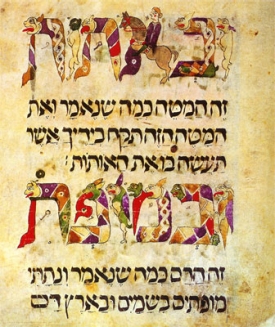 זה המטה כמה שנאמר ואת
המטה הזה תקח בידיך אשר
תעשה בו את האותות:
ובמופת
זה הדם כמה שנאמר ונתתי
מופתים בשמים ובארץ דם